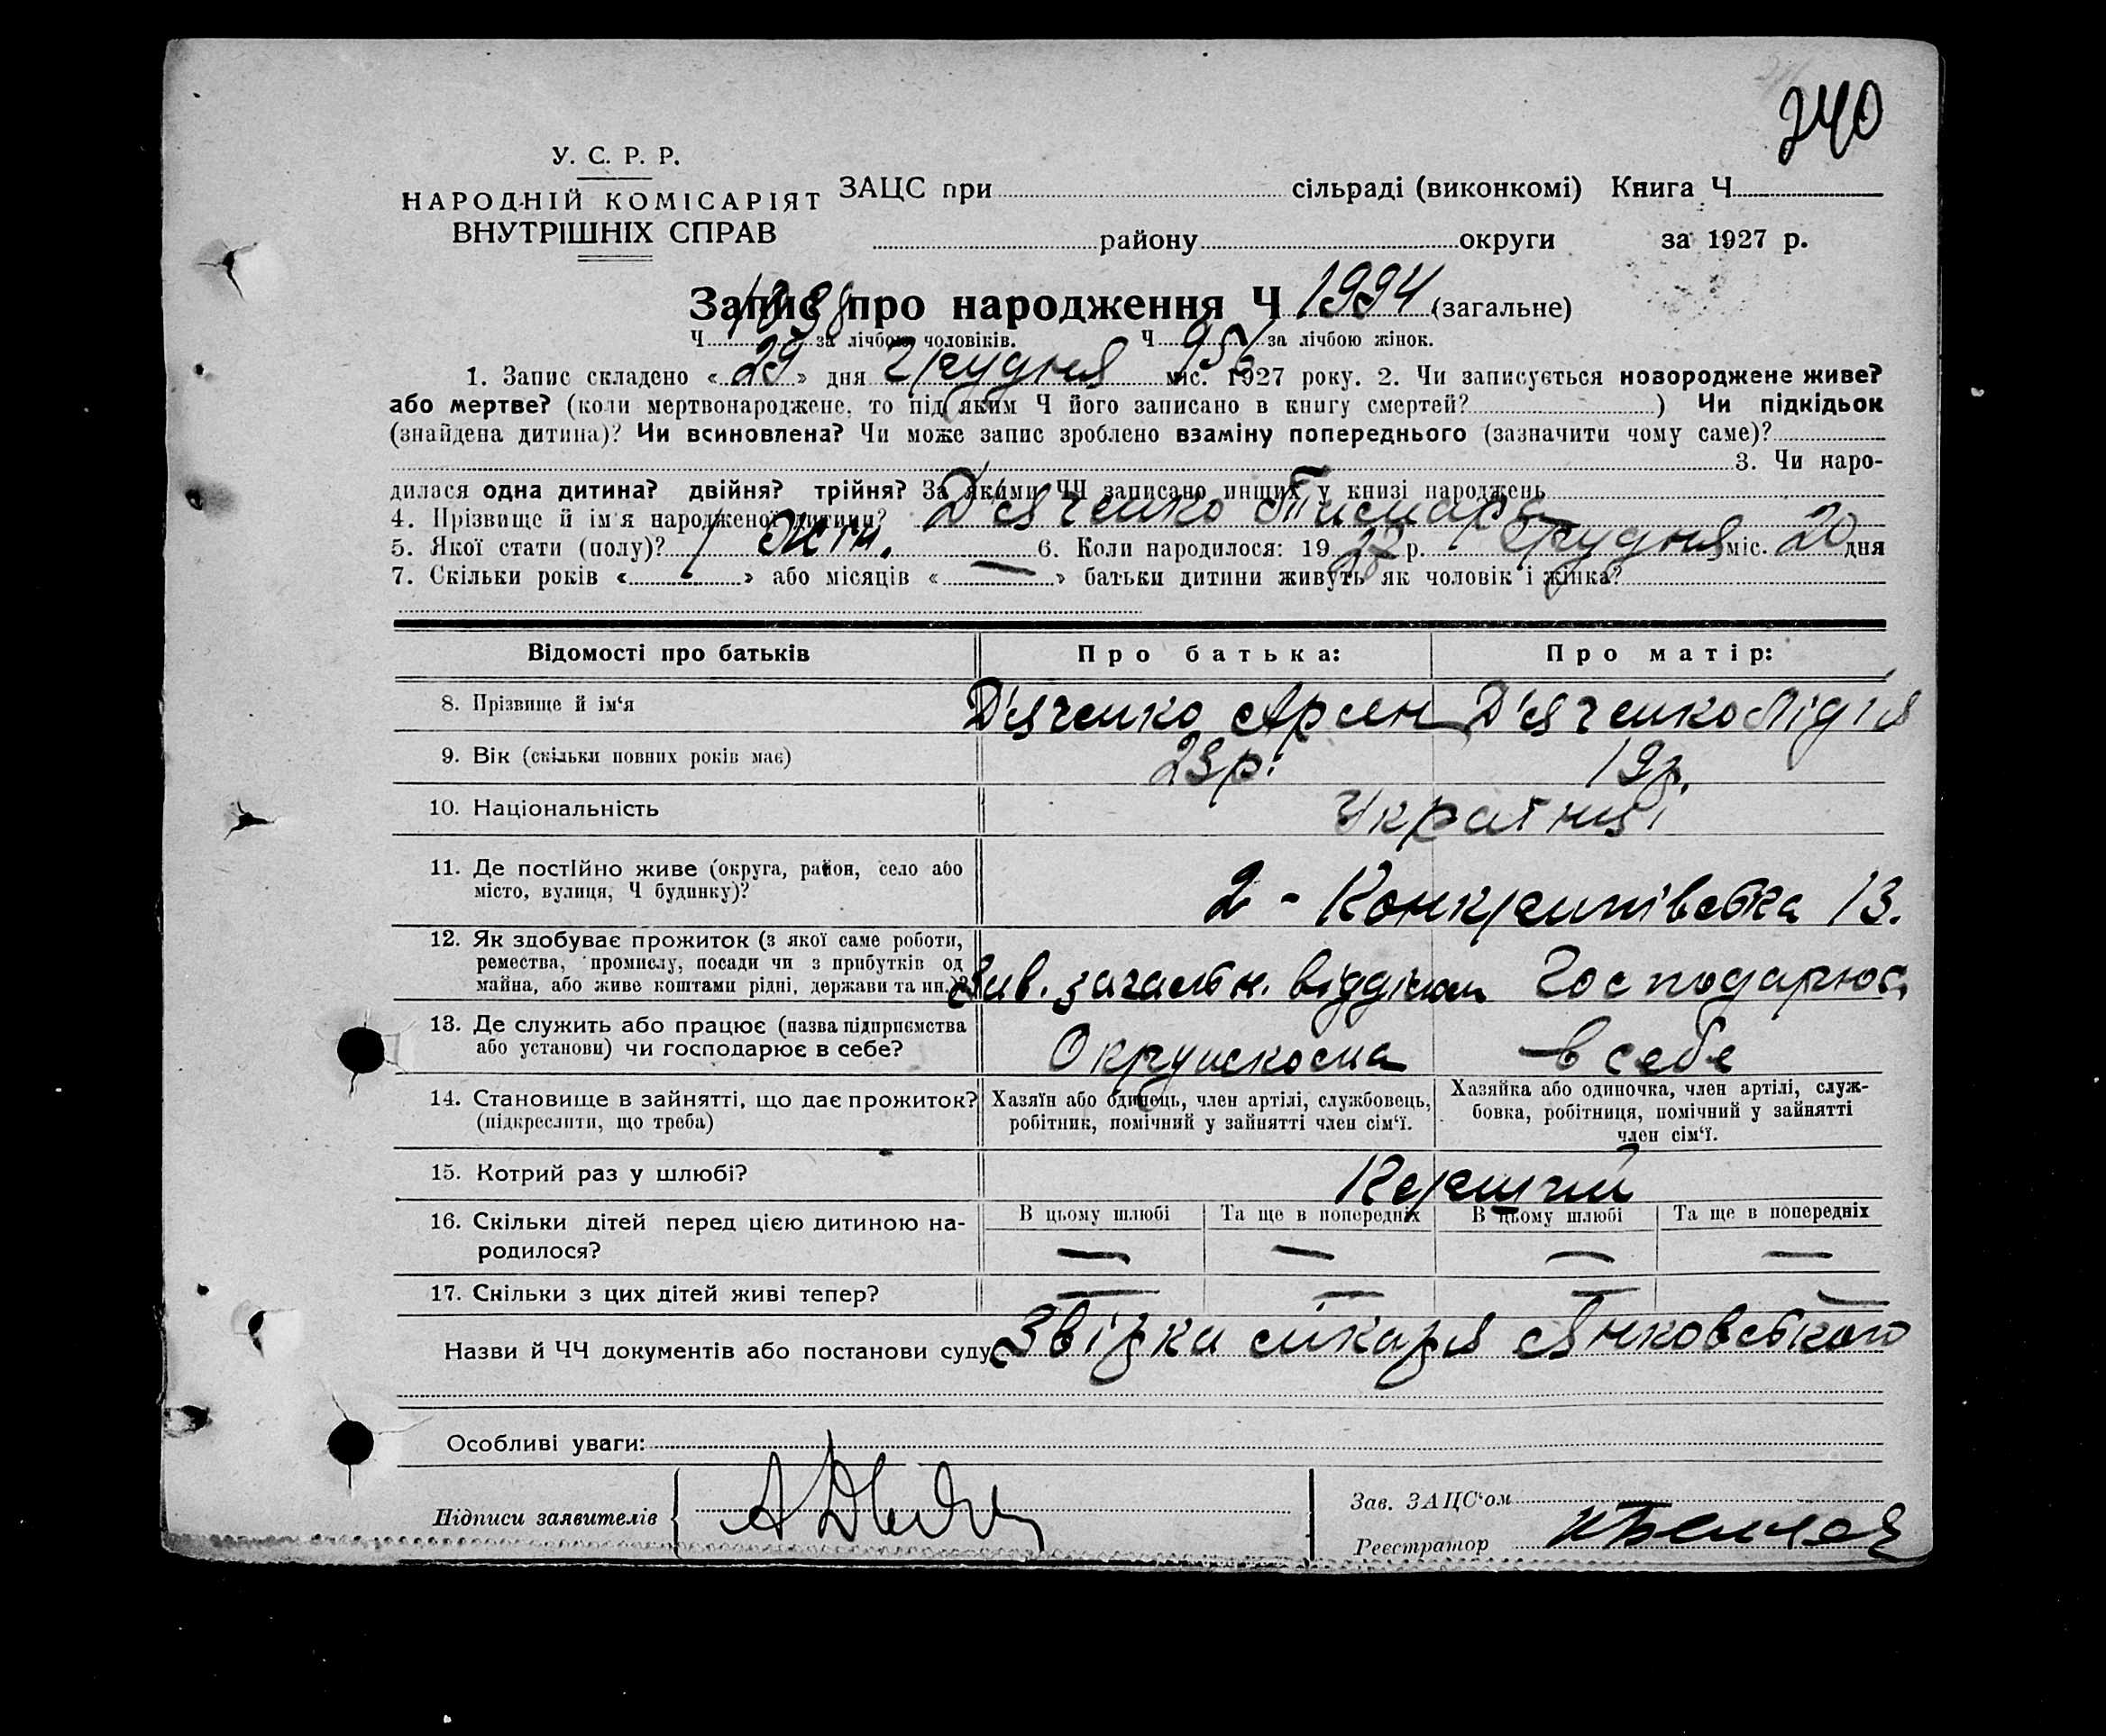 240
У. С. Р. Р.
НАРОДНІЙ КОМІСАРІЯТ
ВНУТРІШНІХ СПРАВ
ЗАЦС при сільраді (виконкомі) Книга Ч
району округи за 1927 р.
Запис про народження Ч 1994 (загальне)
Ч 1038 за лічбою чоловіків. Ч 956 за лічбою жінок.
1. Запис складено « 29 » дня Грудня міс. 1927 року. 2. Чи записується новороджене живе?
або мертве? (коли мертвонароджене, то під яким Ч його записано в книгу смертей? ) Чи підкідьок
(знайдена дитина)? Чи всиновлена? Чи може запис зроблено взаміну попереднього (зазначити чому саме)?
3. Чи наро-
дилася одна дитина? двійня? трійня? За якими ЧЧ записано инших у книзі народжень
4. Прізвище й ім'я народженої дитини? Д'яченко
5. Якої стати (полу)? Жін. 6. Коли народилося: 19 27 р. Грудня міс. 20 дня
7. Скільки років « » або місяців « — » батьки дитини живуть як чоловік і жінка?
Відомості про батьків Про батька: Про матір:
8. Прізвище й ім'я Д'яченко Арсен Д'яченко Лідія
9. Вік (скільки повних років має) 23 р. 19 р.
10. Національність Українці
11. Де постійно живе (округа, район, село або
місто, вулиця, Ч будинку)? 2 - 13.
12. Як здобуває прожиток (з якої саме роботи,
ремества, промислу, посади чи з прибутків од
майна, або живе коштами рідні, держави та ин.)? Зав. загальн. відділом Господарює
13. Де служить або працює (назва підприємства
або установи) чи господарює в себе? в себе
14. Становище в зайнятті, що дає прожиток?
(підкреслити, що треба)
Хазяїн або одинець, член артілі, службовець,
робітник, помічний у зайнятті член сім'ї.
Хазяйка або одиночка, член артілі, служ-
бовка, робітниця, помічний у зайнятті
член сім'ї.
15. Котрий раз у шлюбі? Перший
16. Скільки дітей перед цією дитиною на-
родилося?
В цьому шлюбі Та ще в попередніх В цьому шлюбі Та ще в попередніх
— — — —
17. Скільки з цих дітей живі тепер? — — — —
Назви й ЧЧ документів або постанови суду Звірка лікаря Янковського
Особливі уваги:
Підписи заявителів
Зав. ЗАЦС'ом
Реєстратор